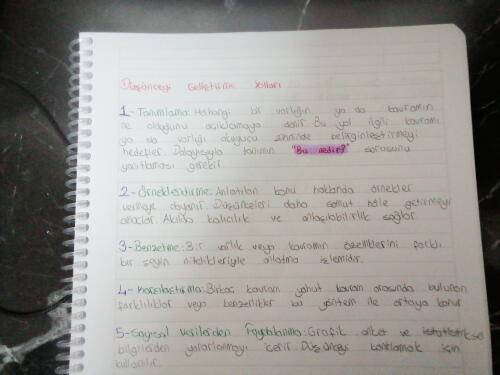 Düşünceyi Geliştirme Yolları
1- Tanımlama: Herhangi bir varlığın ya da kavramın
ne olduğunu açıklamaya denir. Bu yol ilgili kavramı
ya da varlığı okuyucu zihninde belirginleştirmeyi
hedefler. Dolayısıyla tanımın "Bu nedir?" sorusunu
yanıtlaması gerekir.
2- Örneklendirme: Anlatılan konu hakkında örnekler
vermeye dayanır. Düşünceleri daha somut hale getirmeyi
amaçlar. Akılda kalıcılık ve anlaşılabilirlik sağlar.
3- Benzetme: Bir varlık veya kavramın özelliklerini farklı
bir şeyin nitelikleriyle anlatma işlemidir.
4- Karşılaştırma: Birkaç kavram yahut kavram arasında bulunan
farklılıklar veya benzerlikler bu yöntem ile ortaya konur.
5- Sayısal Verilerden Faydalanma: Grafik, anket ve istatistiksel
bilgilerden yararlanmayı içerir. Düşünceyi kanıtlamak için
kullanılır.